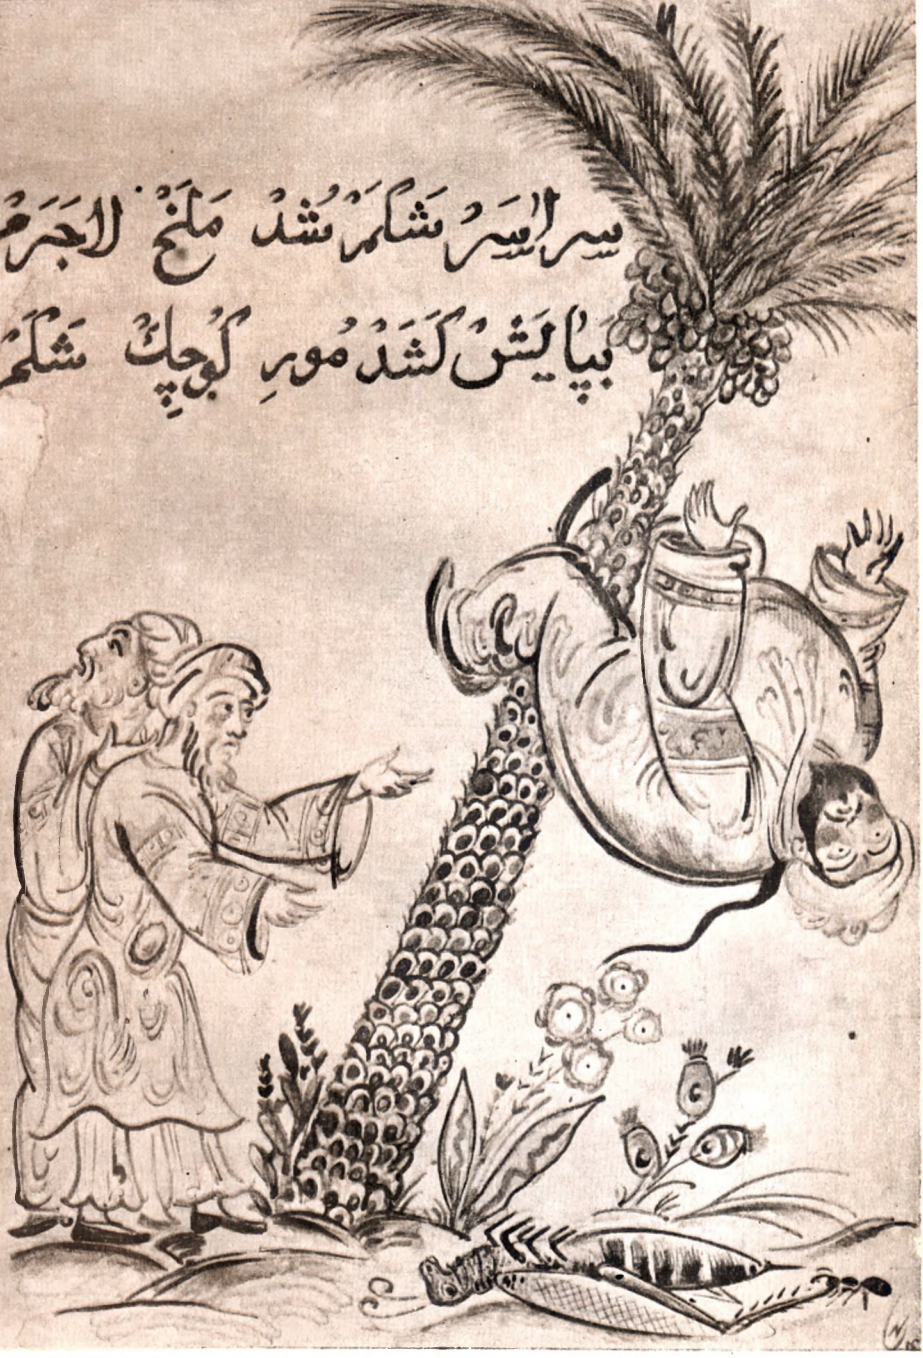 سراسَرْ شَکَمْ شُدْ مَلَخْ لاجَرَمْ
بَپایَشْ کَشَدْ مُورِ کُوچِكْ شَکَمْ